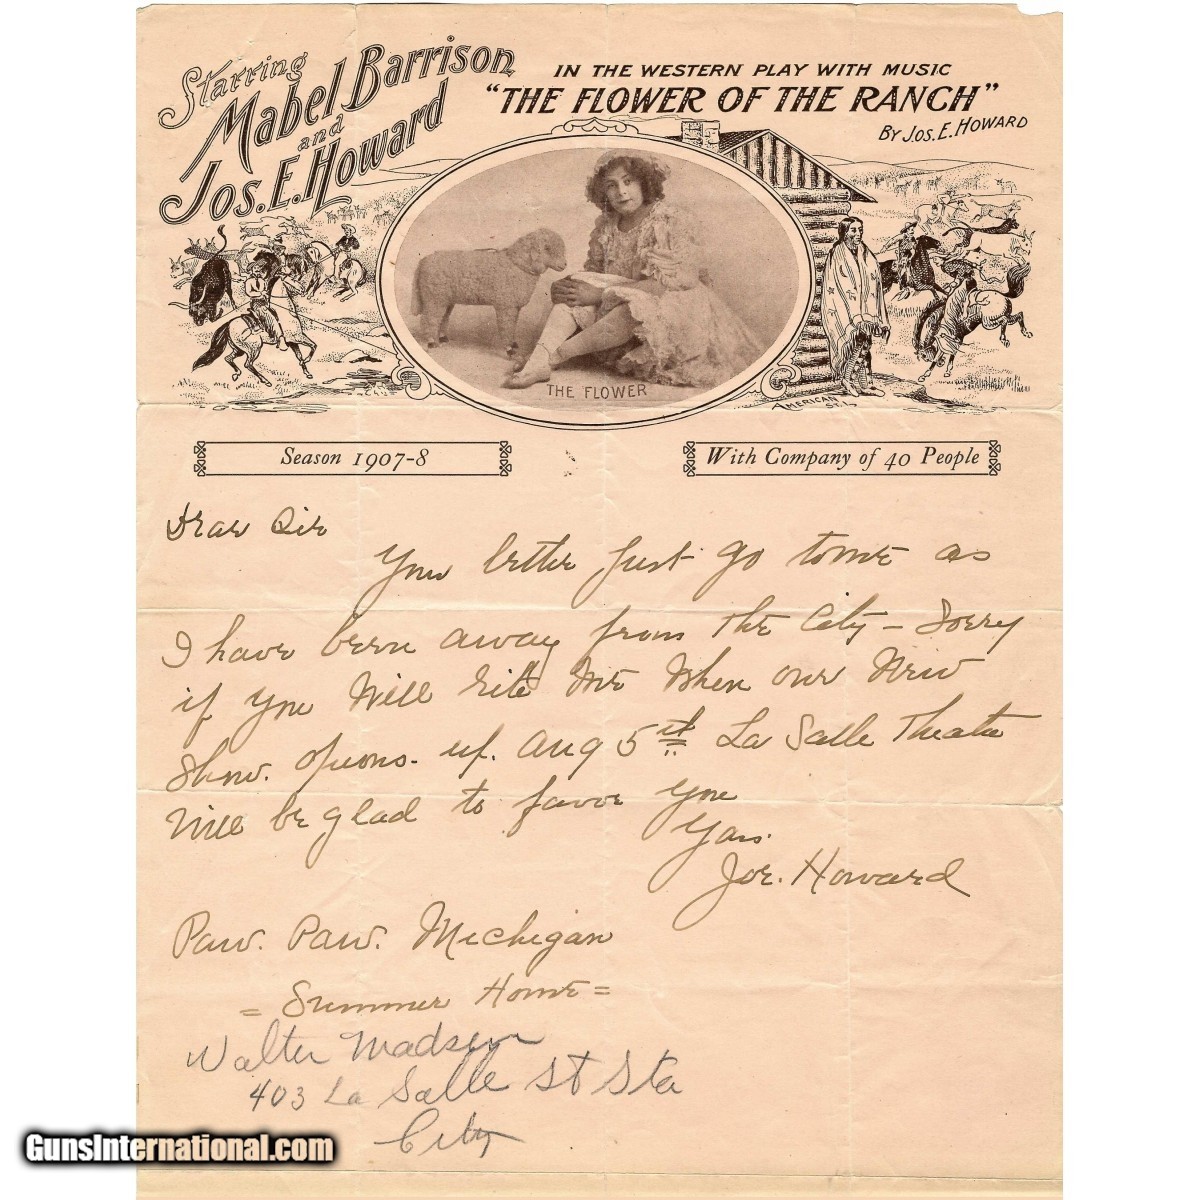 Starring
Mabel Barrison
and
Jos. E. Howard
IN THE WESTERN PLAY WITH MUSIC
"THE FLOWER OF THE RANCH"
BY JOS. E. HOWARD
THE FLOWER
AMERICAN
ST. L.
Season 1907-8
With Company of 40 People
Dear Sir
You better just go to me as
I have been away from the City – Sorry
if you Will rite Me When our New
Show. opens. up. Aug 5th La Salle Theatre
Will be glad to favor you
Yours.
Joe. Howard
Paw. Paw. Michigan
= Summer Home =
Walter Madsen
403 La Salle St Sta
City
GunsInternational.com